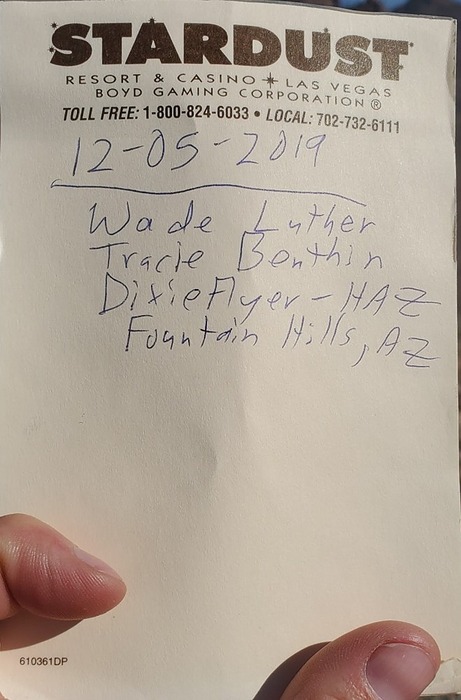 STARDUST
RESORT & CASINO LAS VEGAS
BOYD GAMING CORPORATION ®
TOLL FREE: 1-800-824-6033 • LOCAL: 702-732-6111
12-05-2019
Wade Luther
Tracie Benthin
Dixieflyer - HAZ
Fountain Hills, AZ
610361DP